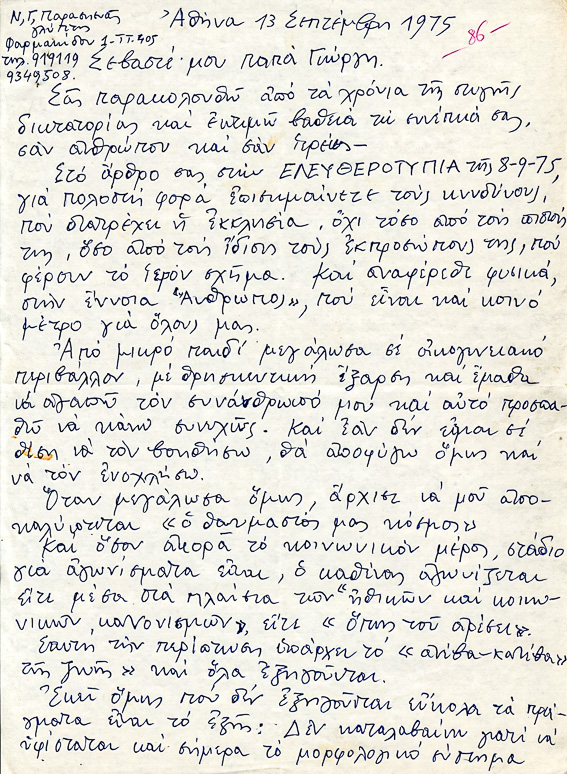 Ν. Γ. Παρασκευᾶς
γλύπτης
Φαρμακίδου 1-ΤΤ.405
τηλ. 919119
9349508.
Ἀθήνα 13 Σεπτέμβρη 1975
86-
Σεβαστέ μου παπᾶ Γιώργη.
Σᾶς παρακολουθῶ ἀπό τά χρόνια τῆς στυγνῆς
δικτατορίας καί ἐκτιμῶ βαθειά τή συνέπειά σας,
σάν ἄνθρωπον καί σάν Ἱερέως-
Στό ἄρθρο σας στήν ΕΛΕΥΘΕΡΟΤΥΠΙΑ τῆς 8-9-75,
γιά πολοστή φορά, ἐπισημαίνετε τούς κινδύνους,
πού διατρέχει ἡ Ἐκκλησία, ὄχι τόσο ἀπό τούς πιστούς
της, ὅσο ἀπό τούς ἴδιους τούς ἐκπροσώπους της, πού
φέρουν τό ἱερόν σχῆμα. Καί ἀναφέρεσθε φυσικά,
στήν ἔννοια "Ἄνθρωπος», πού εἶναι καί κοινό
μέτρο γιά ὅλους μας.
Ἀπό μικρό παιδί μεγάλωσα σέ οἰκογενειακό
περιβάλλον, μέ θρησκευτική ἔξαρση καί ἔμαθα
νά ἀγαπῶ τόν συνάνθρωπό μου καί αὐτό προσπα-
θῶ νά κάνω συνεχῶς. Καί ἐάν δέν εἶμαι σέ
θέση νά τόν βοηθήσω, θά ἀποφύγω ὅμως καί
νά τόν ἐνοχλήσω.
Ὅταν μεγάλωσα ὅμως, ἄρχισε νά μοῦ ἀπο-
καλύπτεται «ὁ θαυμαστός μας κόσμος»
Καί ὅσον ἀφορᾶ τό κοινωνικόν μέρος, στάδιο
γιά ἀγωνίσματα εἶναι, ὁ καθένας ἀγωνίζεται
εἴτε μέσα στά πλαίσια τῶν "ἠθικῶν καί κοινω-
νικῶν, κανονισμῶν», εἴτε «ὅπως τοῦ ἀρέσει».
Σ'αυτή τήν περίπτωση ὑπάρχει τό «ἀνέβα-κατέβα»
τῆς ζωῆς» καί ὅλα ἐξηγοῦνται.
Ἐκεῖ ὅμως πού δέν ἐξηγοῦνται εὔκολα τά πρά-
γματα εἶναι τό ἑξῆς: Δέν καταλαβαίνω γιατί νά
ὑφίσταται καί σήμερα τό μορφολογικό σύστημα